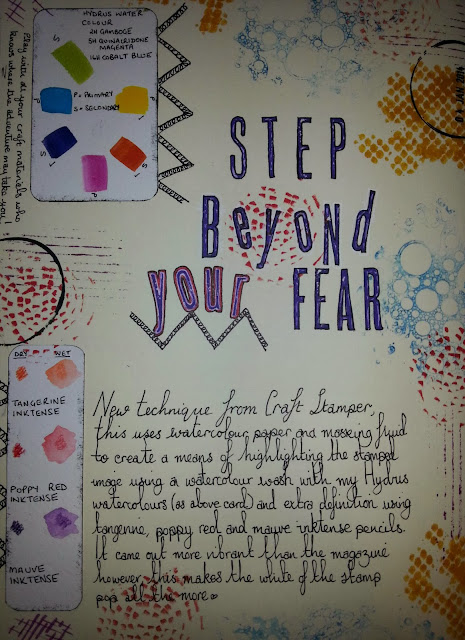 HYDRUS WATER
COLOUR
2H GAMBOGE
5H QUINAIRIDONE
MAGENTA
16H COBALT BLUE
S
P = PRIMARY
S = SECONDARY
P
P
S
S
P
Play with all your craft materials who
knows where the adventure may take you!
STEP
Beyond
your FEAR
DRY WET
TANGERINE
INKTENSE
POPPY RED
INKTENSE
MAUVE
INKTENSE
New technique from Craft Stamper,
this uses watercolour paper and masking fluid
to create a means of highlighting the stamped
image using a watercolour wash with my Hydrus
watercolours (as above card) and extra definition using
tangerine, poppy red and mauve inktense pencils.
It came out more vibrant than the magazine
however, this makes the white of the stamp
pop all the more